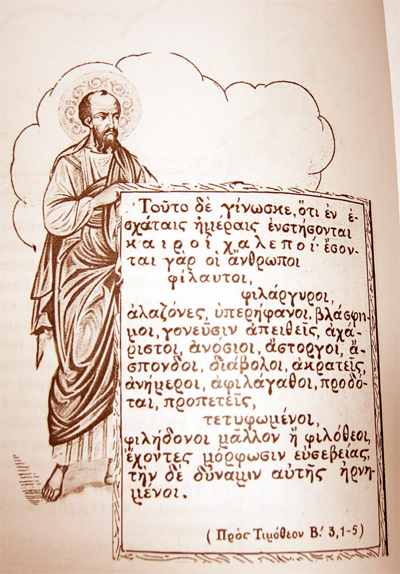 Τοῦτο δὲ γίνωσκε, ὅτι ἐν ἐ-
σχάταις ἡμέραις ἐνστήσονται
καιροὶ χαλεποί· ἔσον-
ται γὰρ οἱ ἄνθρωποι
φίλαυτοι,
φιλάργυροι,
ἀλαζόνες, ὑπερήφανοι, βλάσφη-
μοι, γονεῦσιν ἀπειθεῖς, ἀχά-
ριστοι, ἀνόσιοι, ἄστοργοι, ἄ-
σπονδοι, διάβολοι, ἀκρατεῖς,
ἀνήμεροι, ἀφιλάγαθοι, προδό-
ται, προπετεῖς,
τετυφωμένοι,
φιλήδονοι μᾶλλον ἢ φιλόθεοι,
ἔχοντες μόρφωσιν εὐσεβείας,
τὴν δὲ δύναμιν αὐτῆς ἠρνη-
μένοι.
(Πρὸς Τιμόθεον Β.' 3,1-5)